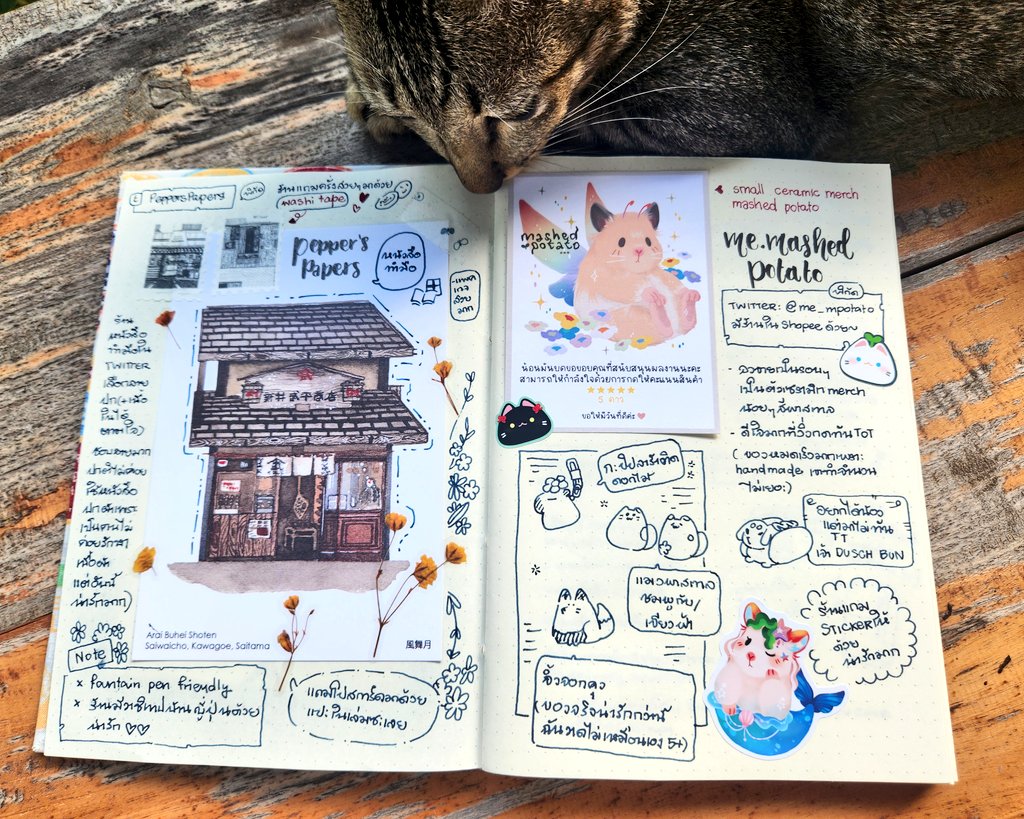 PeppersPapers
พิกัด
ร้านแถมครั่งสวยๆมาด้วย
washi tape
pepper's
Papers
หนังสือ
ทำมือ
ร้าน
หนังสือ
ทำมือใน
TWITTER
เลือกลาย
ปก(+เนื้อ
ในได้
ตามใจ)
ชอบลายมาก
ปกติไม่ค่อย
ใช้หนังสือ
ปกผ้าเพราะ
เป็นคนไม่
ค่อยรักษา
แต่อันนี้
น่ารักมาก)
新井武平商店
Arai Buhei Shoten
Saiwaicho, Kawagoe, Saitama
風舞月
Note
× fountain pen friendly
น่ารัก ♡♡
แถมโปสการ์ดมาด้วย
แปะในเล่มซะเลย
mashed
potato
น้อนมันบดขอขอบคุณที่สนับสนุนผลงานนะคะ
สามารถให้กำลังใจด้วยการกดให้คะแนนสินค้า
5 ดาว
ขอให้มีวันที่ดีค่ะ
small ceramic merch
mashed potato
me.mashed
potato
พิกัด
TWITTER: @me_mpotato
มีร้านใน Shopee ด้วยนะ
เป็นตัวเซรามิก merch
น้อยๆ สีพาสเทล
- ดีใจมากที่วิ่งกดทัน ToT
( ของหมดเร็วมากเพราะ
handmade เขาทำจำนวน
ไม่เยอะ:)
ดอกไม้
แมวพาสเทล
ชมพูกับ/
เขียวฟ้า
อยากได้น้อง
แต่กดไม่ทัน
TT
เจ้า DUSCH BUN
ร้านแถม
STICKERให้
ด้วย
น่ารักมาก
จิ้งจอกคุง
(ของจริงน่ารักกว่านี้
ฉันวาดไม่เหมือนเอง 5+)